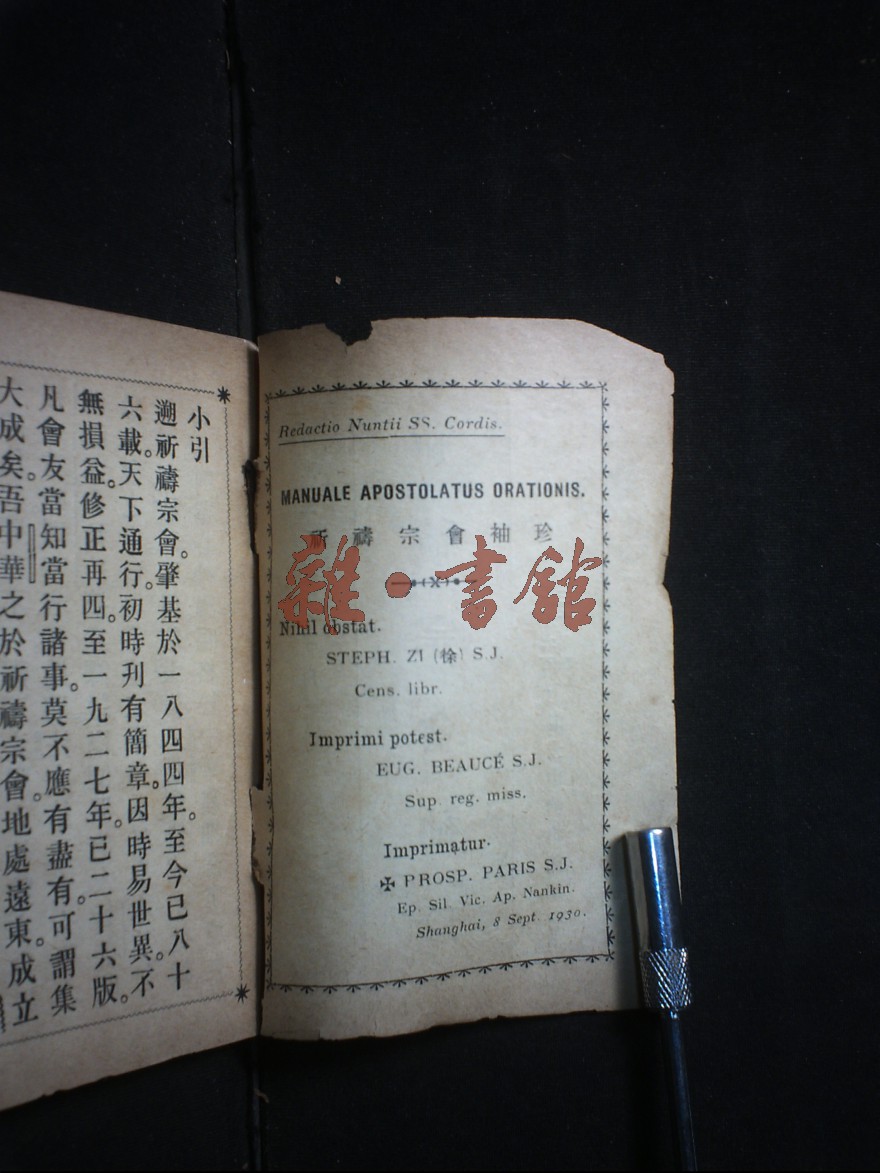 小引
遡祈禱宗會。肇基於一八四四年。至今已八十
六載。天下通行。初時刋有簡章。因時易世異。不
無損益。修正再四。至一九二七年。已二十六版。
凡會友當知當行諸事。莫不應有盡有。可謂集
大成矣。吾中華之於祈禱宗會。地處遠東。成立
Redactio Nuntii SS. Cordis.
MANUALE APOSTOLATUS ORATIONIS.
祈禱宗會袖珍
雜·書館
Nihil obstat.
STEPH. ZI (徐) S.J.
Cens. libr.
Imprimi potest.
EUG. BEAUCÉ S.J.
Sup. reg. miss.
Imprimatur.
✠ PROSP. PARIS S.J.
Ep. Sil. Vic. Ap. Nankin.
Shanghai, 8 Sept. 1930.